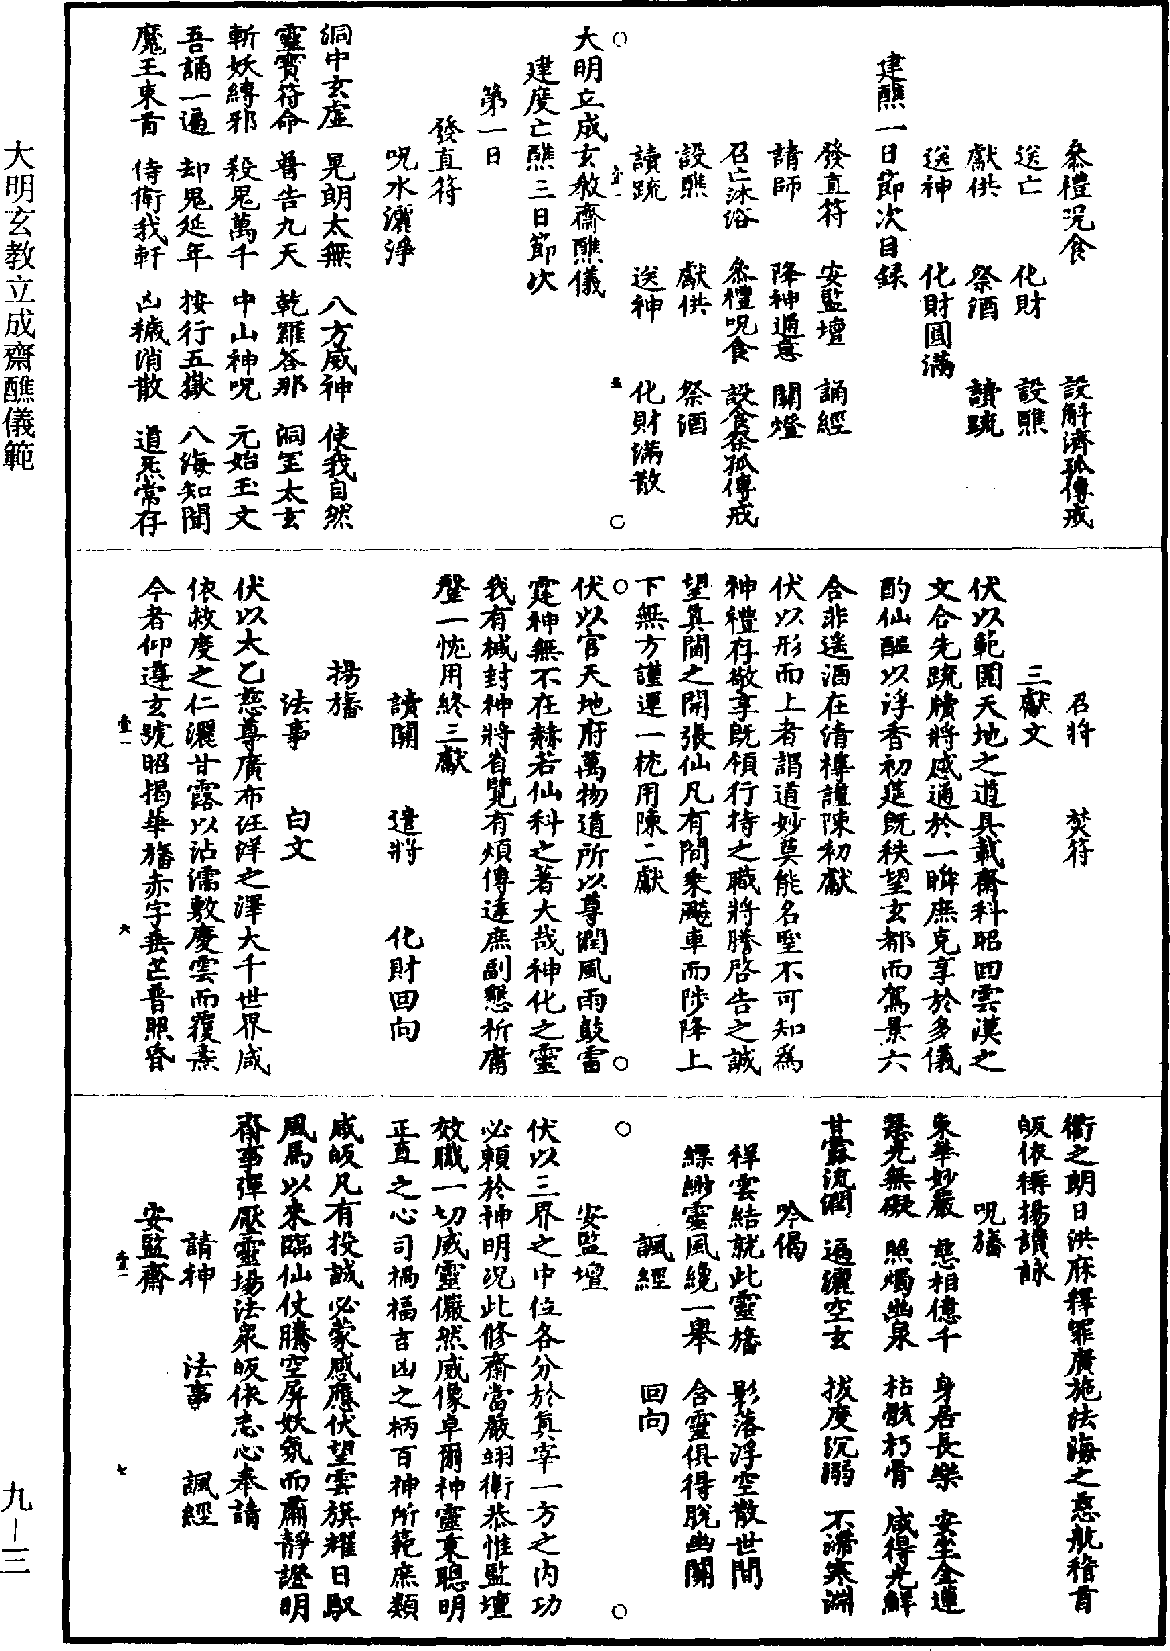 大明玄教立成齋醮儀範
九—三
叅禮咒食　設斛濟孤傳戒
送亡　化財　設醮
獻供　祭酒　讀疏
送神　化財圓滿
建醮一日節次目録
發直符　安監壇　誦經
請師　降神通意　關燈
召亡沐浴　叅禮呪食　設食祭孤傳戒
設醮　獻供　祭酒
讀疏　送神　化財滿散
壹一　五
大明立成玄教齋醮儀
建度亡醮三日節次
第一日
發直符
呪水灑淨
洞中玄虛　晃朗太無　八方威神　使我自然
靈寳符命　普告九天　乾羅答那　洞罡太玄
斬妖縛邪　殺鬼萬千　中山神呪　元始玉文
吾誦一遍　却鬼延年　按行五嶽　八海知聞
魔王束首　侍衛我軒　凶穢消散　道炁常存
召將　焚符
三獻文
伏以範圍天地之道具載齋科昭回雲漢之
文合先䟽牘將感通於一眸庶克享於多儀
酌仙醞以浮香初筵既秩望玄都而駕景六
合非遥酒在清樽謹陳初獻
伏以形而上者謂道妙莫能名聖不可知為
神禮存敬享既領行持之職將謄啓告之誠
望真閽之開張仙凡有間乗飈車而陟降上
下無方謹運一忱用陳二獻
伏以官天地府萬物道所以尊潤風雨鼓雷
霆神無不在赫若仙科之著大哉神化之靈
我有椷封神將省覽有煩傳達庶副懇祈庸
罄一忱用終三獻
讀關　遣將　化財回向
揚旛
法事　白文
伏以太乙慈尊廣布汪洋之澤大千世界咸
依救度之仁灑甘露以沾濡敷慶雲而覆燾
今者仰遵玄號昭揭華旛赤字垂芒普照昏
壹一　六
衢之朗日洪庥釋罪廣施法海之慈航稽首
皈依稱揚讃詠
呪旛
東華妙嚴　慈相億千　身居長樂　安坐金蓮
慧光無礙　照燭幽泉　枯骸朽骨　咸得光鮮
甘露流潤　遍灑空玄　拔度沉溺　不滯寒淵
吟偈
祥雲結就此靈旛　影落浮空散世間
縹緲靈風纔一舉　含靈俱得脫幽關
諷經　回向
安監壇
伏以三界之中位各分於真宰一方之内功
必頼於神明況此修齋當嚴翊衛恭惟監壇
效職一切威靈儼然威像卓爾神靈秉聰明
正直之心司禍福吉凶之柄百神所範庶類
咸皈凡有投誠必蒙感應伏望雲旗耀日馭
風馬以來臨仙仗騰空屏妖氛而肅靜證明
齋事彈壓靈塲法衆皈依志心奉請
請神　法事　諷經
安監齋
壹一　七